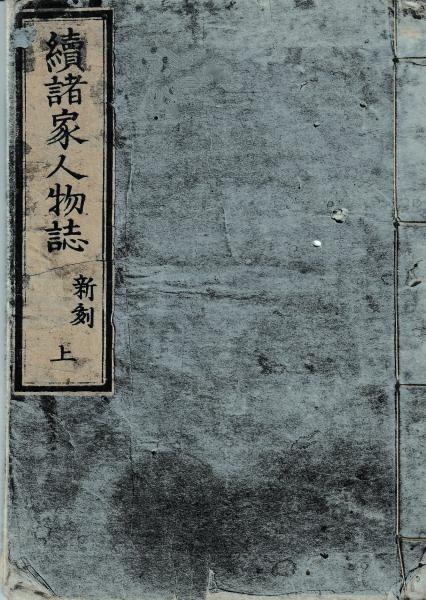 續諸家人物誌
新刻
上